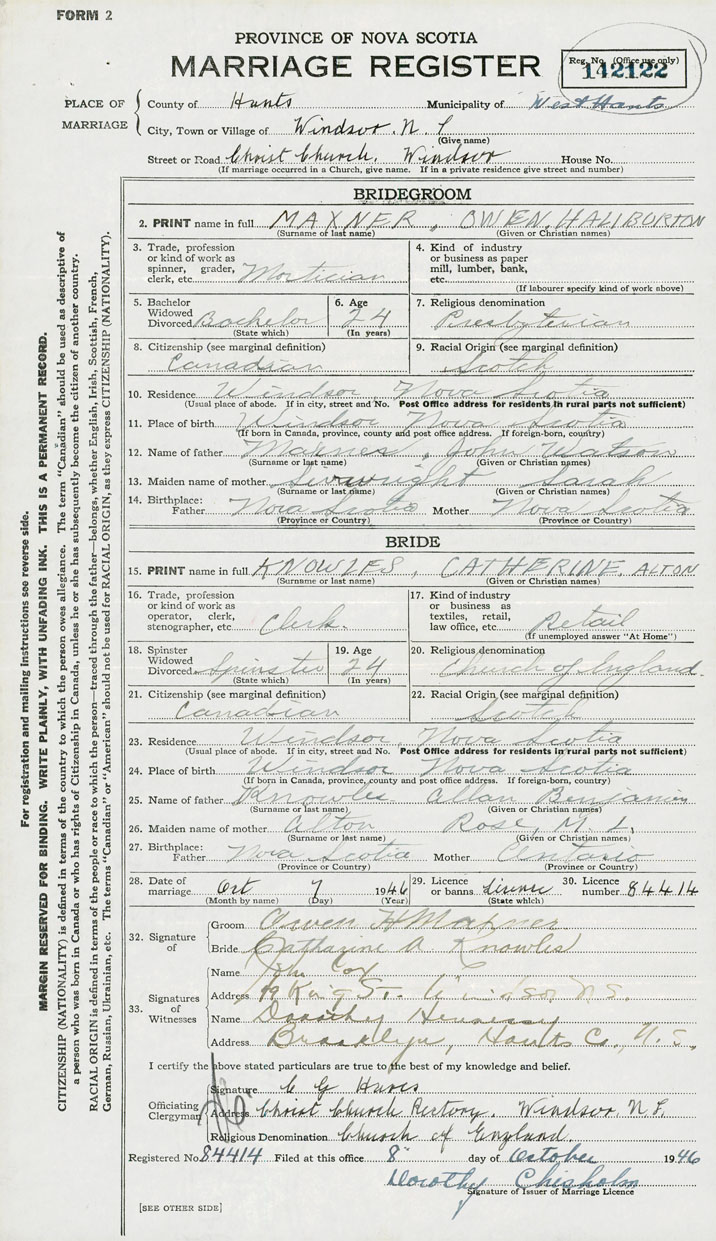 FORM 2
PROVINCE OF NOVA SCOTIA
MARRIAGE REGISTER
Reg. No. (Office use only)
142122
PLACE OF MARRIAGE
County of Hants Municipality of West Hants
City, Town or Village of Windsor, N. S
(Give name)
Street or Road Christ Church. Windsor House No.
(If marriage occurred in a Church, give name. If in a private residence give street and number)
BRIDEGROOM
2. PRINT name in full MAXNER, OWEN, HALIBURTON
(Surname or last name) (Given or Christian names)
3. Trade, profession or kind of work as spinner, grader, clerk, etc. Mortician
4. Kind of industry or business as paper mill, lumber, bank, etc.
(If labourer specify kind of work above)
5. Bachelor Widowed Divorced Bachelor
(State which)
6. Age 24
(In years)
7. Religious denomination
Presbyterian
8. Citizenship (see marginal definition)
Canadian
9. Racial Origin (see marginal definition)
Scotch
10. Residence Windsor, Nova Scotia
(Usual place of abode. If in city, street and No. Post Office address for residents in rural parts not sufficient)
11. Place of birth Windsor Nova Scotia
(If born in Canada, province, county and post office address. If foreign-born, country)
12. Name of father Maxner, John Watson
(Surname or last name) (Given or Christian names)
13. Maiden name of mother Sarah
(Surname or last name) (Given or Christian names)
14. Birthplace: Father Nova Scotia Mother Nova Scotia
(Province or Country) (Province or Country)
BRIDE
15. PRINT name in full KNOWLES, CATHERINE, ALTON
(Surname or last name) (Given or Christian names)
16. Trade, profession or kind of work as operator, clerk, stenographer, etc. Clerk.
17. Kind of industry or business as textiles, retail, law office, etc. Retail
(If unemployed answer "At Home")
18. Spinster Widowed Divorced Spinster
(State which)
19. Age 24
(In years)
20. Religious denomination
Church of England.
21. Citizenship (see marginal definition)
Canadian
22. Racial Origin (see marginal definition)
Scotch
23. Residence Windsor, Nova Scotia
(Usual place of abode. If in city, street and No. Post Office address for residents in rural parts not sufficient)
24. Place of birth Windsor Nova Scotia
(If born in Canada, province, county and post office address. If foreign-born, country)
25. Name of father Knowles Allan Benjamin
(Surname or last name) (Given or Christian names)
26. Maiden name of mother Alton Rose, M. L.
(Surname or last name) (Given or Christian names)
27. Birthplace: Father Nova Scotia Mother Ontario
(Province or Country) (Province or Country)
28. Date of marriage Oct 7 1946
(Month by name) (Day) (Year)
29. Licence or banns License
(State which)
30. Licence number 84414
32. Signature of
Groom Owen H Maxner
Bride Catharine A Knowles
33. Signatures of Witnesses
Name John Cox
Address 99 King St. Windsor N.S.
Name Dorothy Hennessy
Address Brooklyn, Hants Co., N. S.
I certify the above stated particulars are true to the best of my knowledge and belief.
Officiating Clergyman
Signature C G
Address Christ Church Rectory. Windsor, N.S.
Religious Denomination Church of England.
Registered No. 84414 Filed at this office 8th day of October 1946
Dorothy Chisholm
Signature of Issuer of Marriage Licence
[SEE OTHER SIDE]
For registration and mailing instructions see reverse side.
MARGIN RESERVED FOR BINDING. WRITE PLAINLY, WITH UNFADING INK. THIS IS A PERMANENT RECORD.
CITIZENSHIP (NATIONALITY) is defined in terms of the country to which the person owes allegiance. The term "Canadian" should be used as descriptive of
a person who was born in Canada or who has rights of Citizenship in Canada, unless he or she has subsequently become the citizen of another country.
RACIAL ORIGIN is defined in terms of the people or race to which the person—traced through the father—belongs, whether English, Irish, Scottish, French,
German, Russian, Ukrainian, etc. The terms "Canadian" or "American" should not be used for RACIAL ORIGIN, as they express CITIZENSHIP (NATIONALITY).